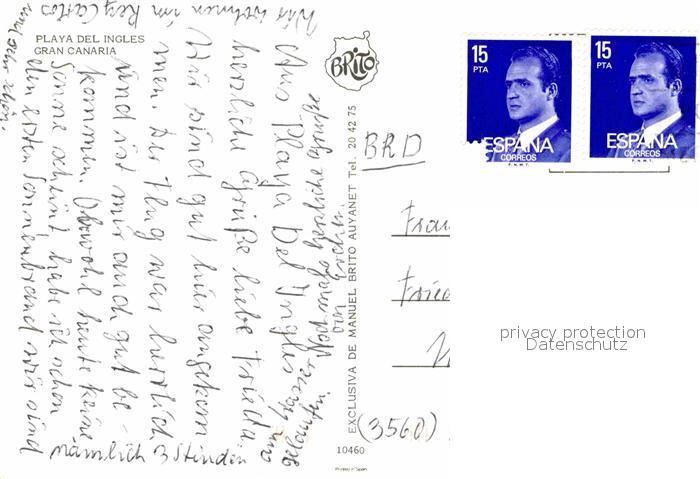 PLAYA DEL INGLES
GRAN CANARIA
Brito
EXCLUSIVA DE MANUEL BRITO AUYANET Tel. 20 42 75
10460
Printed in Spain
15
PTA
ESPAÑA
CORREOS
F.N.M.T.
15
PTA
ESPAÑA
CORREOS
F.N.M.T.
BRD
Frau
Fried
(3560)
privacy protection
Datenschutz
Aus Playa Del Ingles
herzliche Grüße liebe Frieda.
Wir sind gut hier angekom
men. Der Flug war herrlich
und ist mir auch gut be-
kommen. Obwohl heute keine
Sonne scheint habe ich schon
den ersten Sonnenbrand wir sind
nämlich 3 Stunden
gelaufen.
Nochmals herzliche Grüße
von
Wir wohnen im Rey Carlos
und sehr schön.